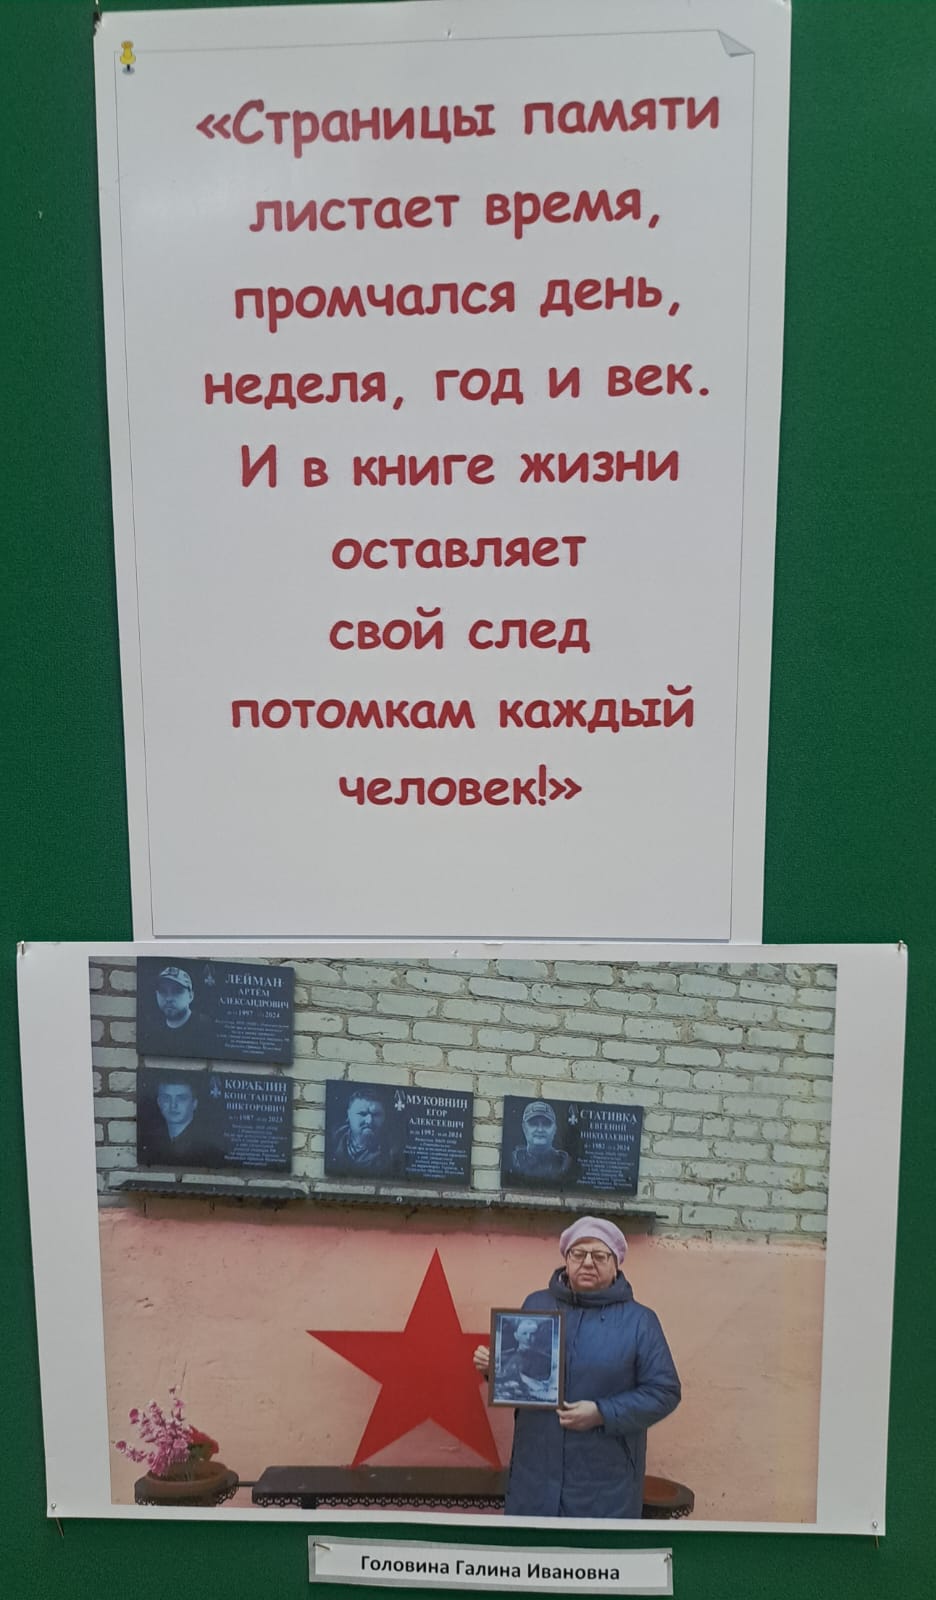 «Страницы памяти
листает время,
промчался день,
неделя, год и век.
И в книге жизни
оставляет
свой след
потомкам каждый
человек!»
ЛЕЙМАН
АРТЁМ
АЛЕКСАНДРОВИЧ
1997 2024
КОРАБЛИН
КОНСТАНТИН
ВИКТОРОВИЧ
1987 2023
МУКОВНИН
ЕГОР
АЛЕКСЕЕВИЧ
1992 2024
СТАТИВКА
ЕВГЕНИЙ
НИКОЛАЕВИЧ
1983 2024
Головина Галина Ивановна